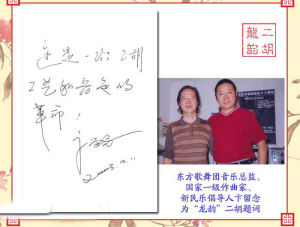 这是一次二胡
工艺和音色的
革命！
2008.9.11
二胡
龍韵
东方歌舞团音乐总监、
国家一级作曲家、
新民乐倡导人卞留念
为“龙韵”二胡题词